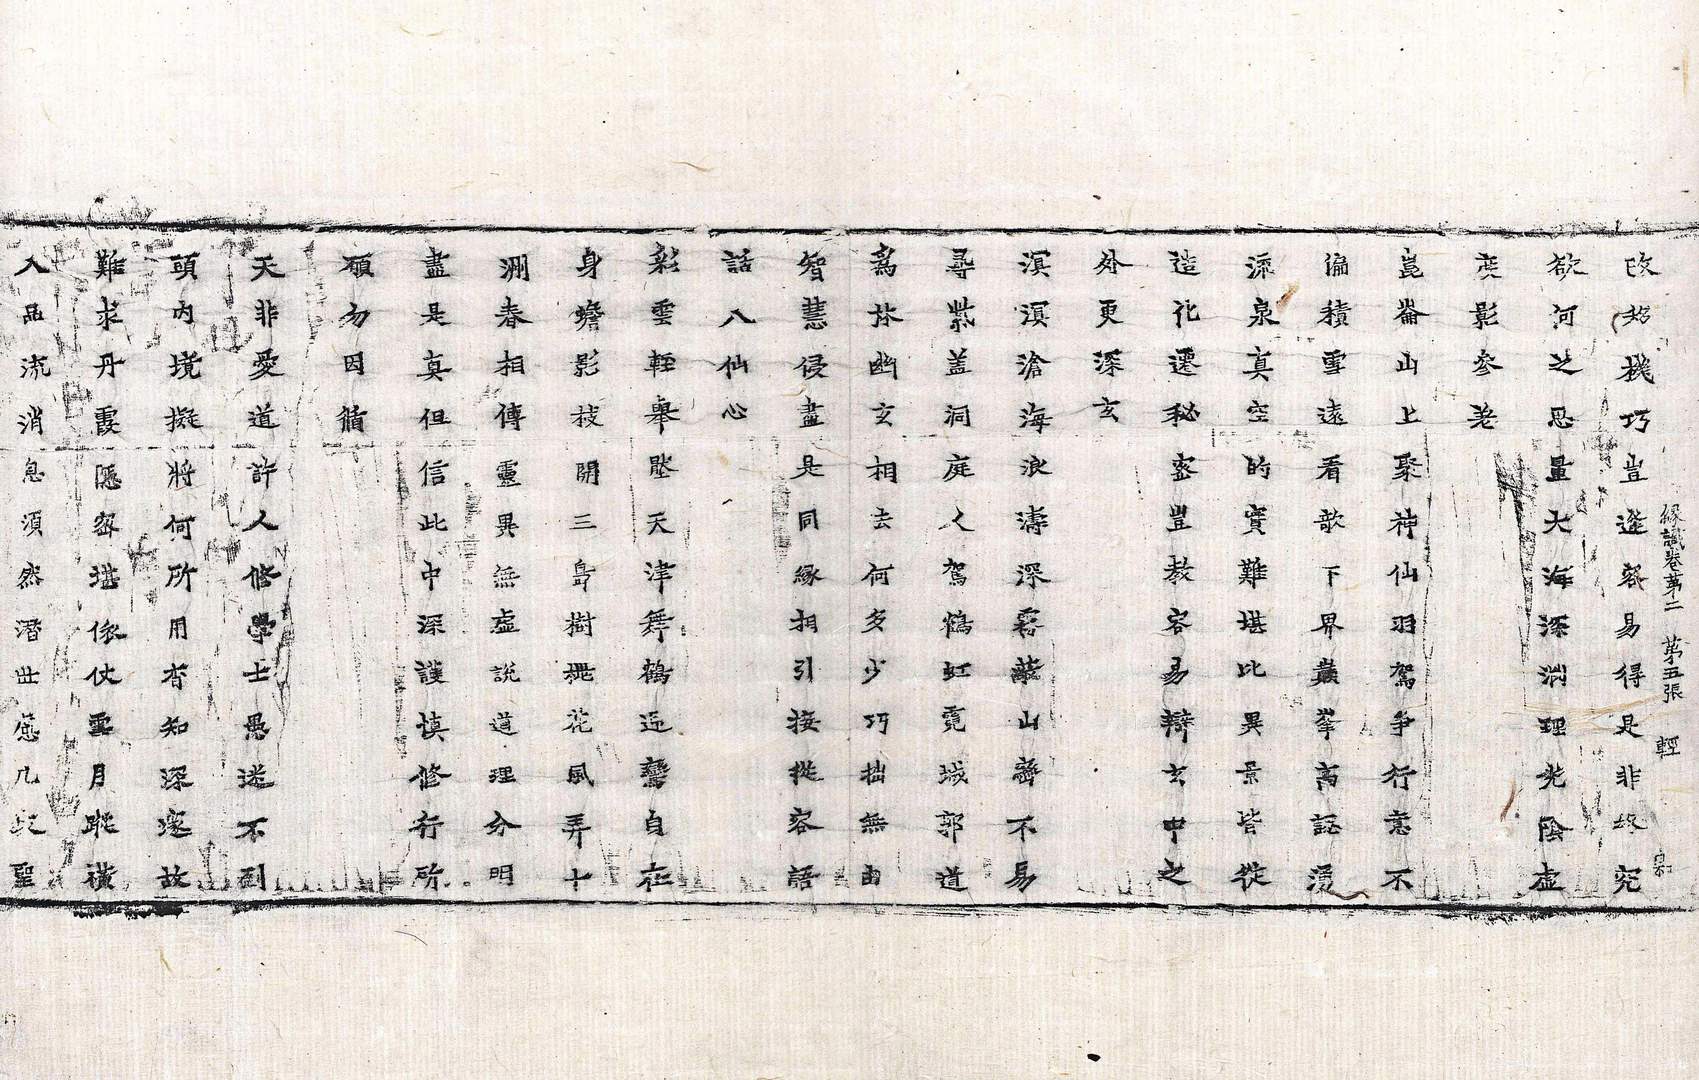 緣識卷第二　第五張　輕
改移機巧豈遙容易得是非故究
欲河之思量大海深淵理光陰虛
度影參差
崑崙山上聚神仙羽駕爭行意不
偏積雪遠看欹下界叢峯高認湧
流泉真空的實難堪比異景皆從
造化遷祕密豈教容易辯玄中之
外更深玄
溟溟滄海浪濤深霧蔽山齊不易
尋紫蓋洞庭人駕鶴虹霓城郭道
為林幽玄相去何多少巧拙無由
智慧侵盡是同緣相引接從容語
話八仙心
彩雲輕舉墜天津舞鶴迎鸞自在
身蟾影枝開三島樹桃花風弄十
洲春相傳靈異無虛說道理分明
盡是真但信此中深護慎修行所
願勿因循
天非愛道許人修學士愚迷不到
頭內境擬將何所用杳知深邃故
難求丹霞隱密堪依仗雲月蹤橫
入品流消息須然潛世惑凡歧聖